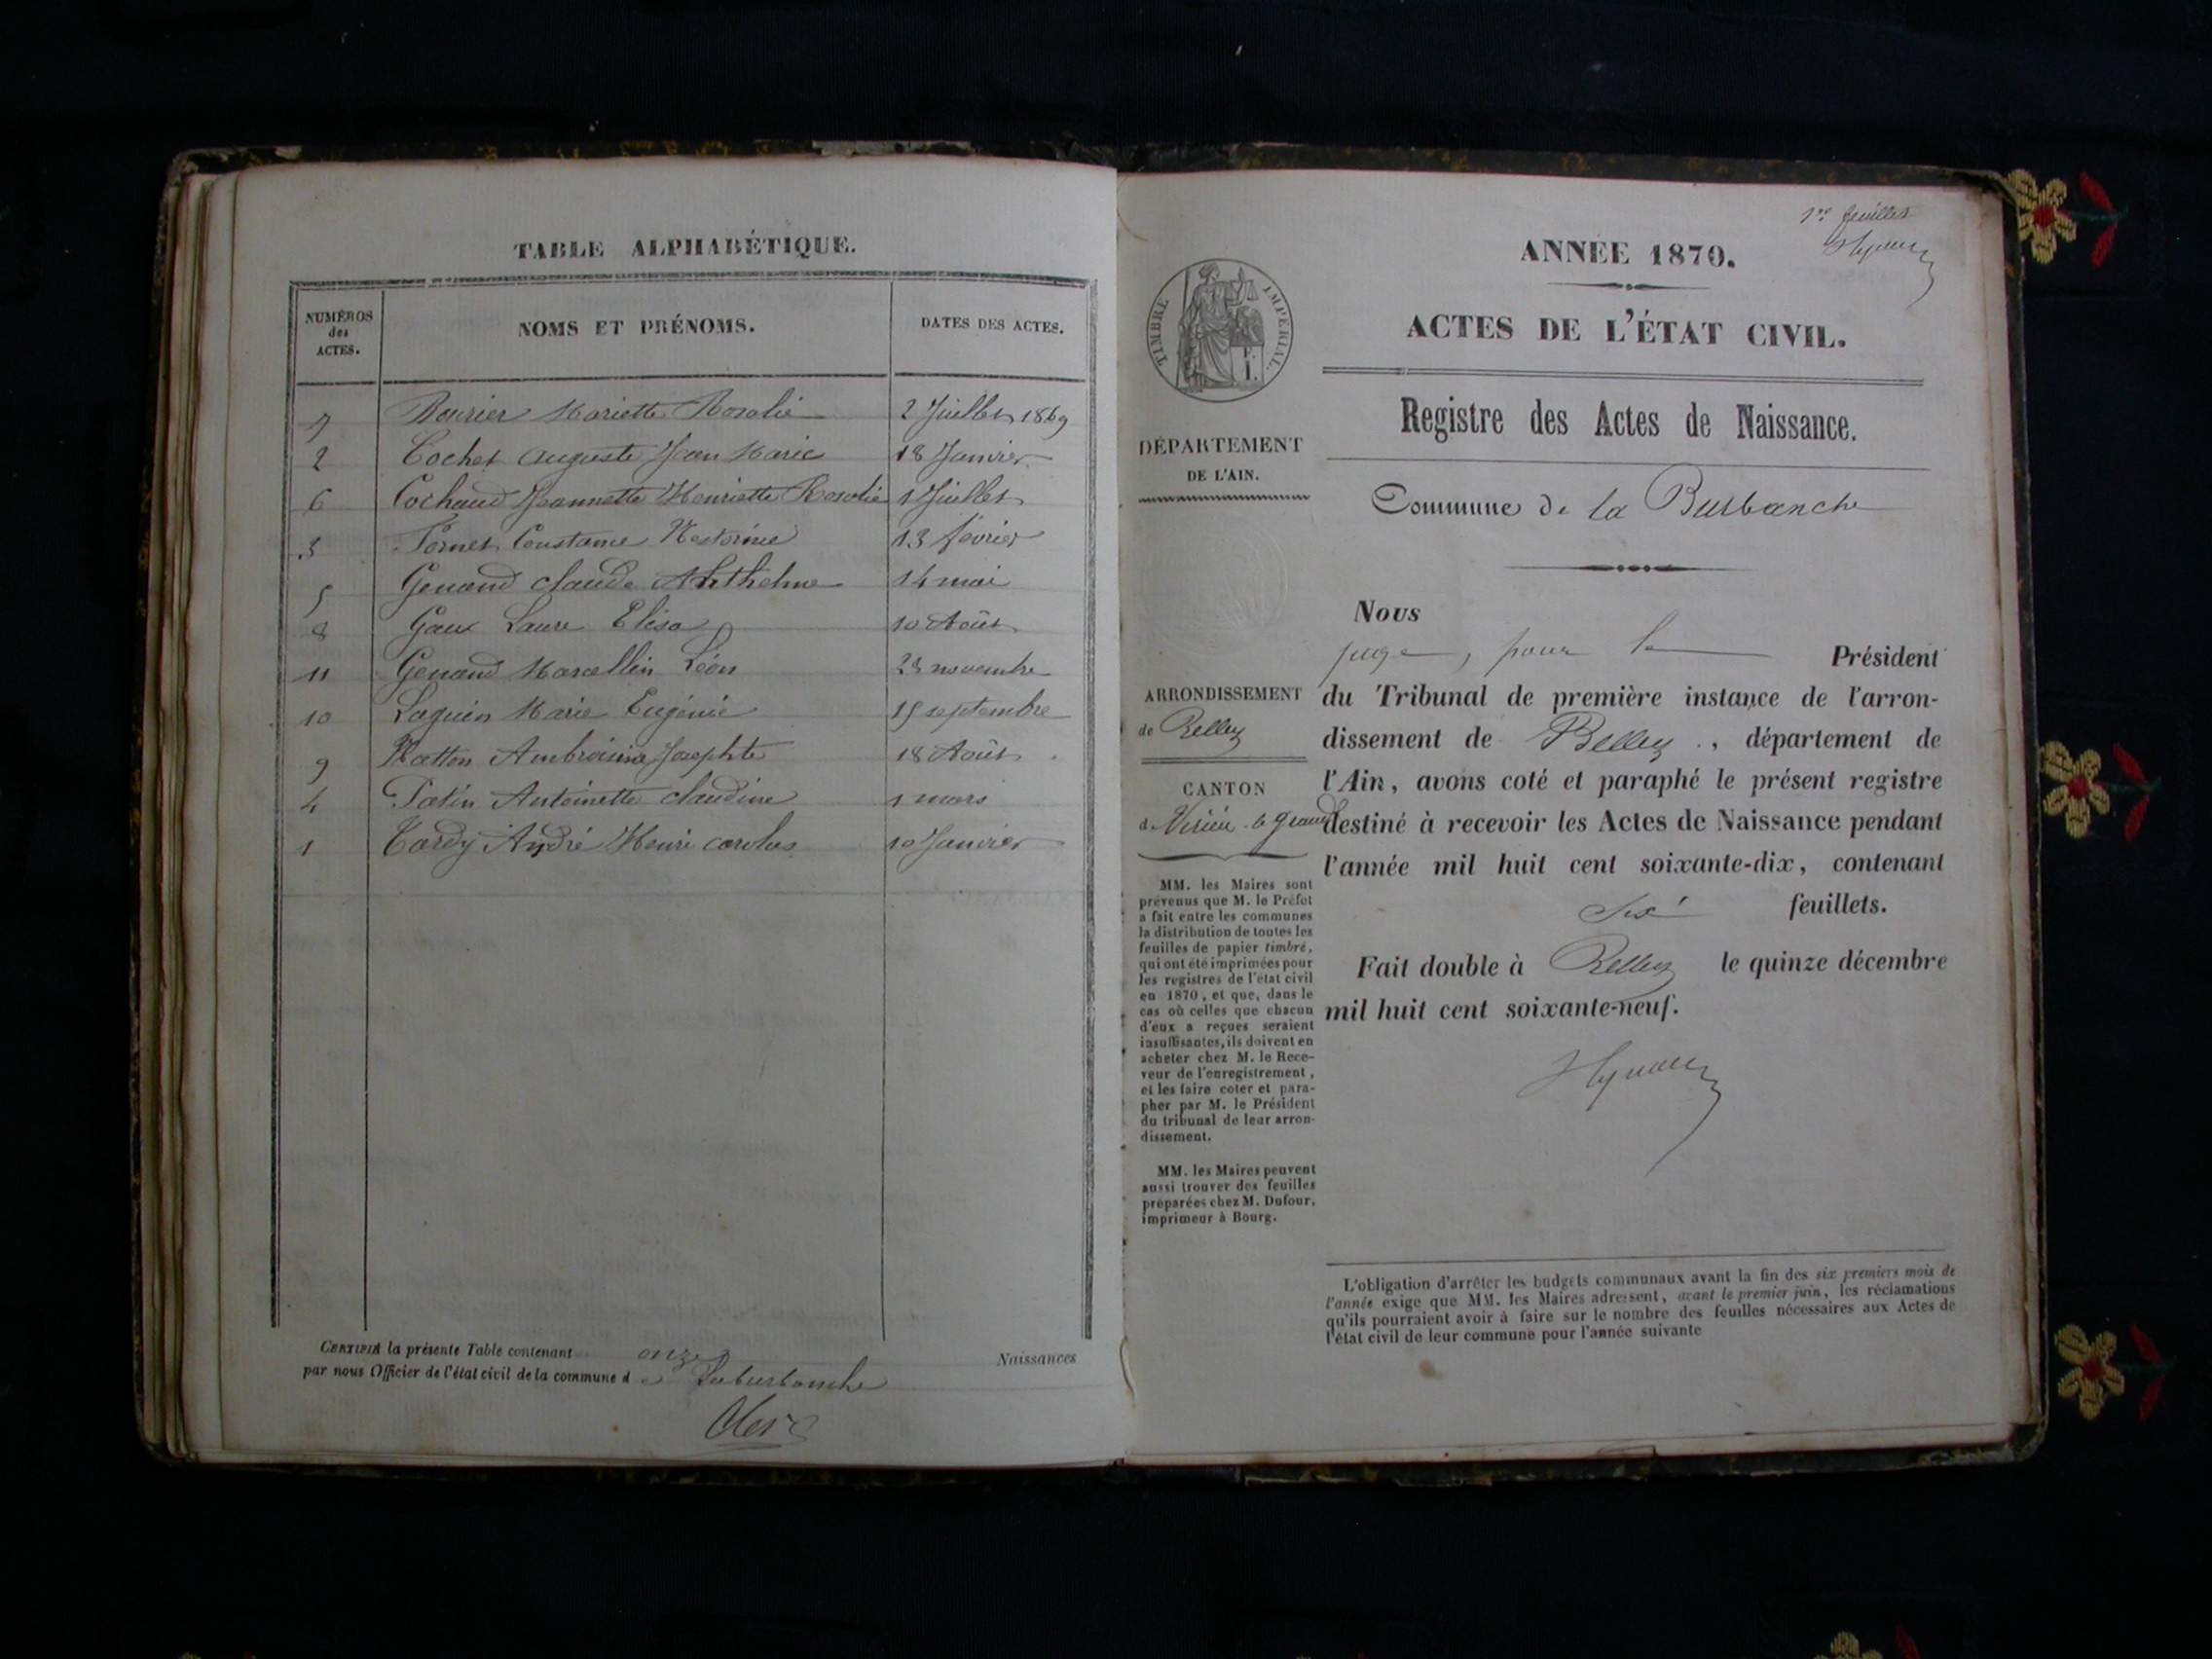 TABLE ALPHABÉTIQUE.
NUMÉROS
des
ACTES.
NOMS ET PRÉNOMS.
DATES DES ACTES.
7 Mariette Rosalie 2 Juillet 1869
2 Cochet Auguste Jean Marie 18 Janvier
6 Cochaud Jeannette Henriette Rosalie 1 Juillet
3 Constance 13 février
5 Genand Claude Anthelme 14 mai
8 Laure Elisa 10 Août
11 Genand Marcellin Léon 28 novembre
10 Laguin Marie Eugénie 15 septembre
9 Ambroisine Josephte 18 Août
4 Tatin Antoinette Claudine 1 mars
1 Tardy André Henri 10 Janvier
CERTIFIÉ la présente Table contenant onze Naissances
par nous Officier de l'état civil de la commune de Laburbanche
1er feuillet
ANNÉE 1870.
ACTES DE L'ÉTAT CIVIL.
Registre des Actes de Naissance.
Commune de la Burbanche
TIMBRE IMPÉRIAL.
DÉPARTEMENT
DE L'AIN.
ARRONDISSEMENT
de Belley
CANTON
de Virieu le grand
MM. les Maires sont
prévenus que M. le Préfet
a fait entre les communes
la distribution de toutes les
feuilles de papier timbré,
qui ont été imprimées pour
les registres de l'état civil
en 1870, et que, dans le
cas où celles que chacun
d'eux a reçues seraient
insuffisantes, ils doivent en
acheter chez M. le Rece-
veur de l'enregistrement,
et les faire coter et para-
pher par M. le Président
du tribunal de leur arron-
dissement.
MM. les Maires peuvent
aussi trouver des feuilles
préparées chez M. Dufour,
imprimeur à Bourg.
Nous
juge, pour le Président
du Tribunal de première instance de l'arron-
dissement de Belley, département de
l'Ain, avons coté et paraphé le présent registre
destiné à recevoir les Actes de Naissance pendant
l'année mil huit cent soixante-dix, contenant
six feuillets.
Fait double à Belley le quinze décembre
mil huit cent soixante-neuf.
L'obligation d'arrêter les budgets communaux avant la fin des six premiers mois de
l'année exige que MM. les Maires adressent, avant le premier juin, les réclamations
qu'ils pourraient avoir à faire sur le nombre des feuilles nécessaires aux Actes de
l'état civil de leur commune pour l'année suivante